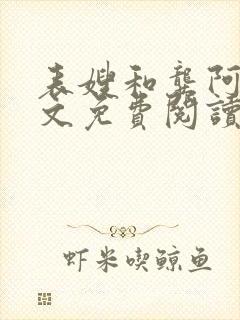 表嫂和龚阿
文免費閱讀
虾米喫鲸鱼